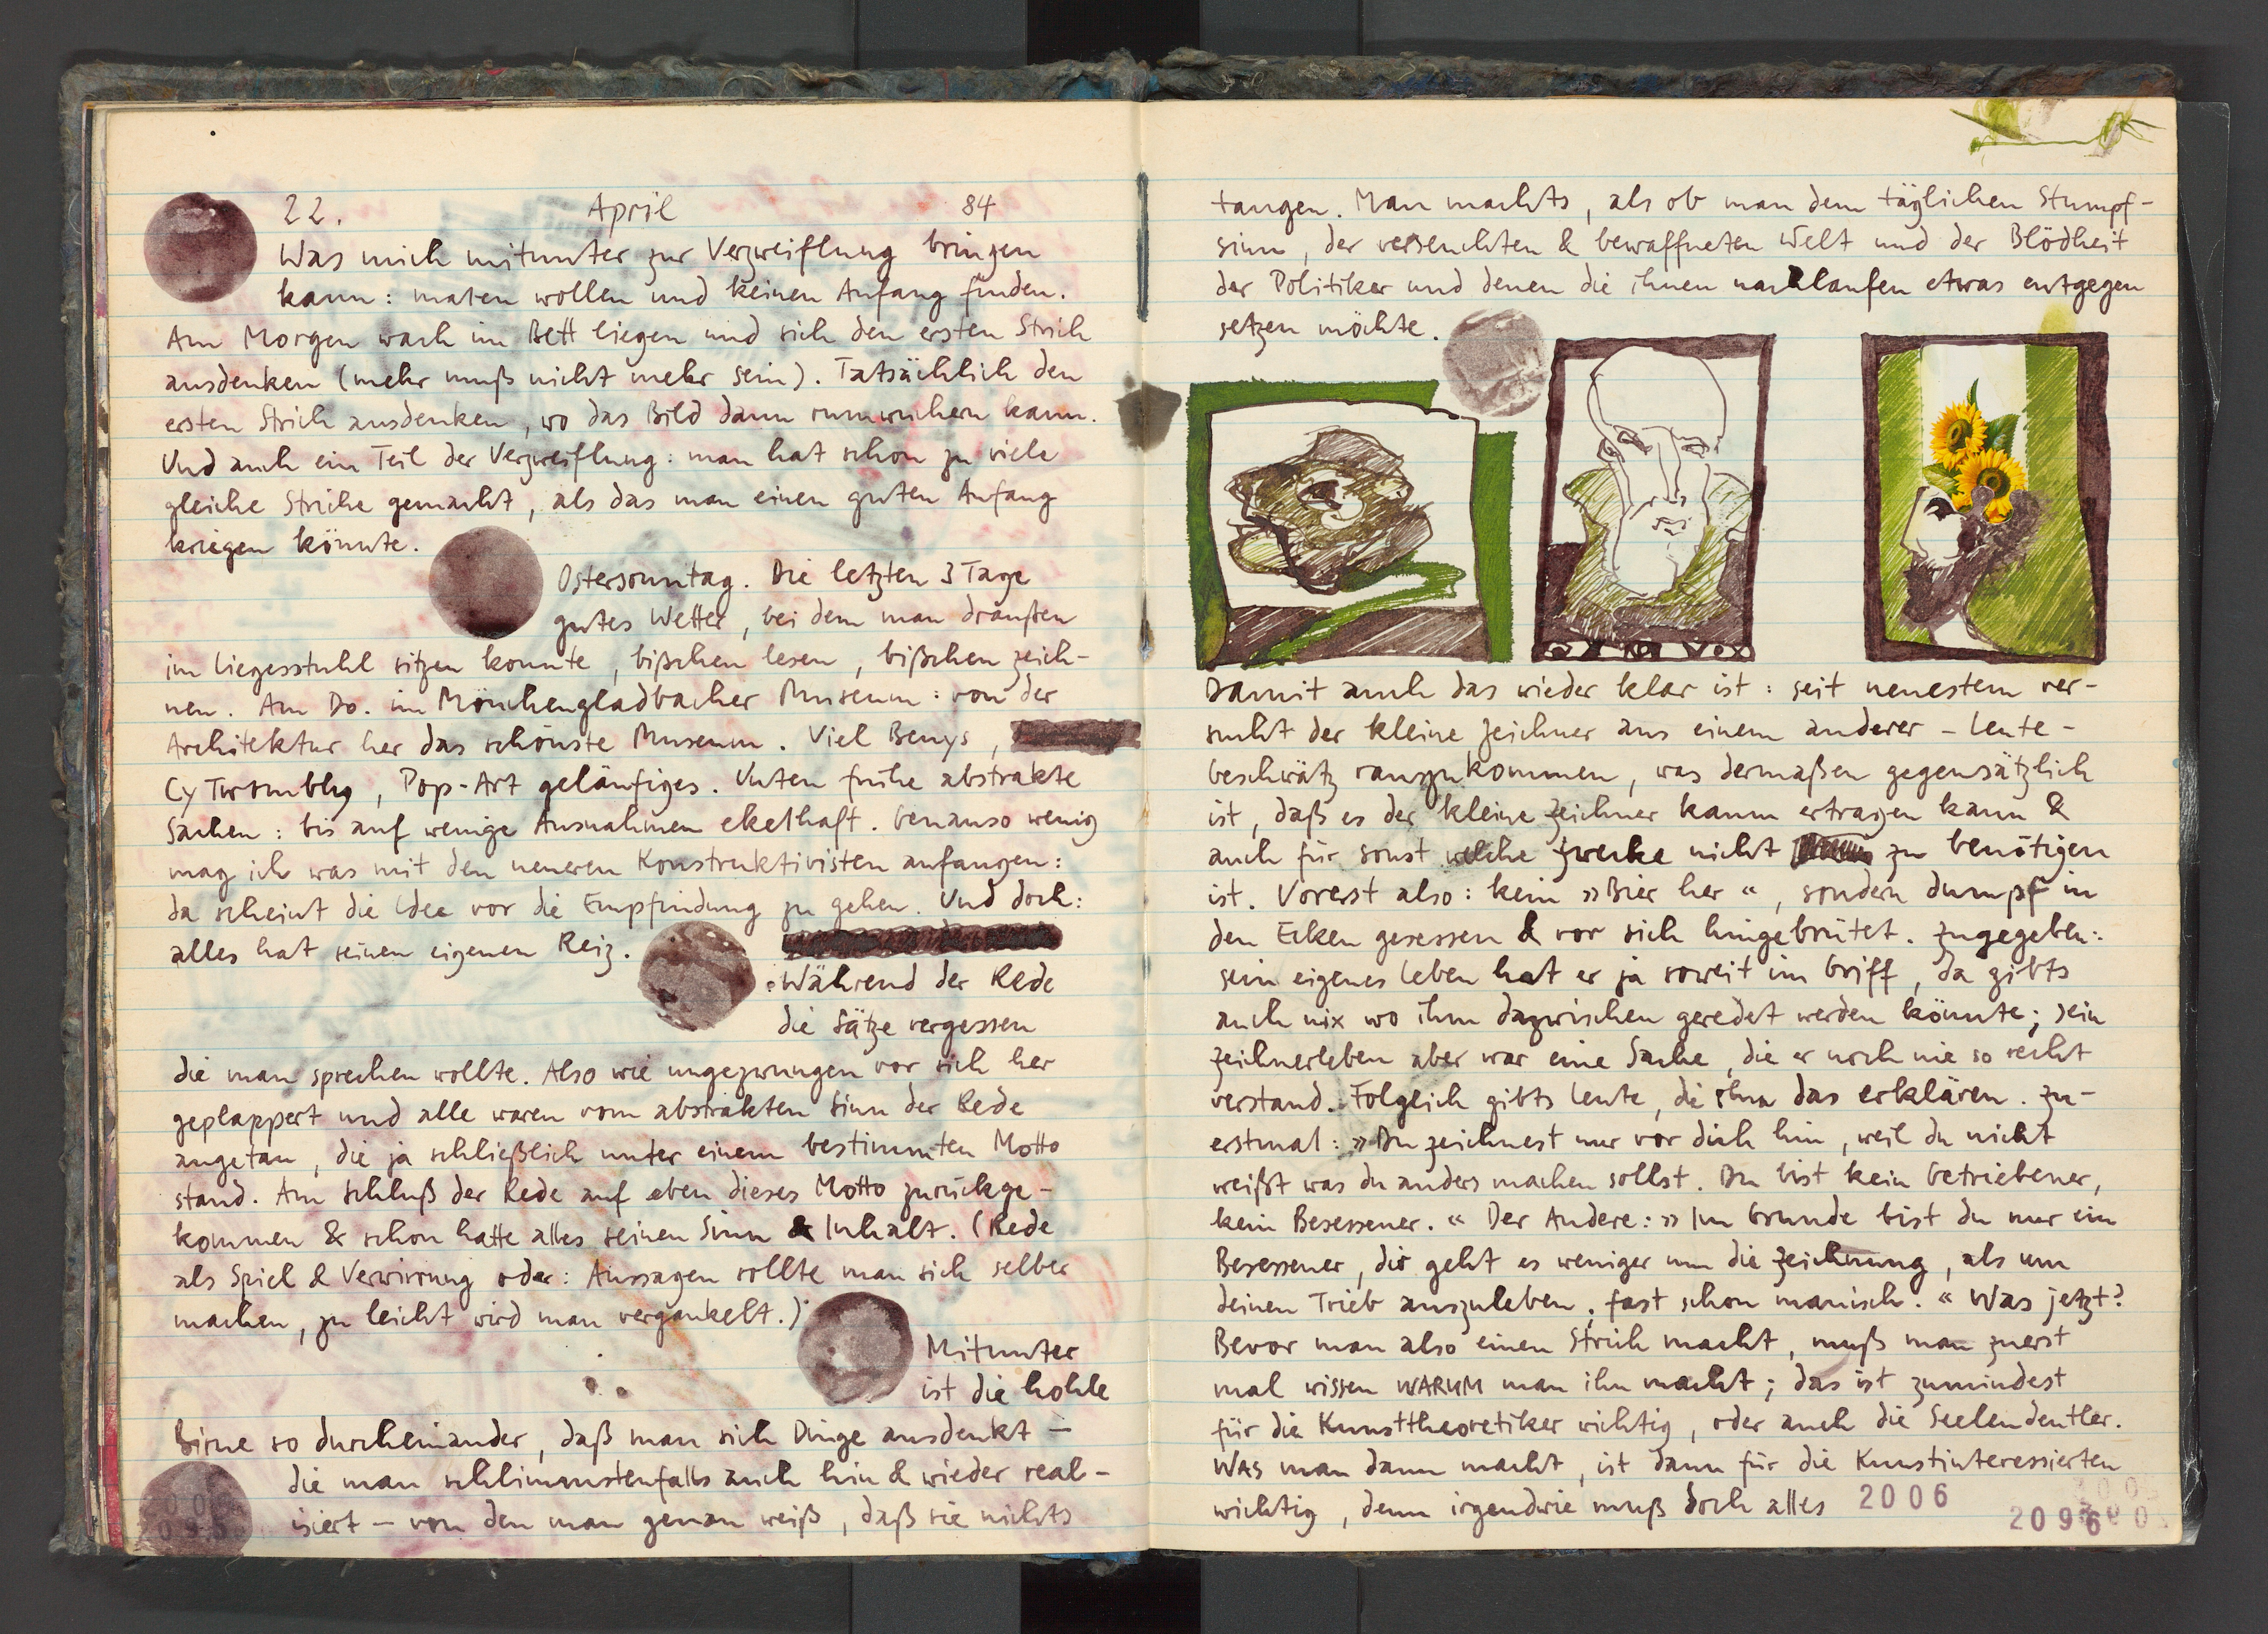 22. April 84
Was mich mitunter zur Verzweiflung bringen
kann: malen wollen und keinen Anfang finden.
Am Morgen wach im Bett liegen und sich den ersten Strich
ausdenken (mehr muß nicht mehr sein). Tatsächlich den
ersten Strich ausdenken, wo das Bild dann rumwuchern kann.
Und auch ein Teil der Verzweiflung: man hat schon zu viele
gleiche Striche gemacht, als das man einen guten Anfang
kriegen könnte.
Ostersonntag. Die letzten 3 Tage
gutes Wetter, bei dem man draußen
im Liegesstuhl sitzen konnte, bißchen lesen, bißchen zeich-
nen. Am Do. im Mönchengladbacher Museum: von der
Architektur her das schönste Museum. Viel Beuys,
Cy Twombly, Pop-Art geläufiges. Unten frühe abstrakte
Sachen: bis auf wenige Ausnahmen ekelhaft. Genauso wenig
mag ich was mit den neueren Konstruktivisten anfangen:
da scheint die Idee vor die Empfindung zu gehen. Und doch:
alles hat seinen eigenen Reiz.
Während der Rede
die Sätze vergessen
die man sprechen wollte. Also wie ungezwungen vor sich her
geplappert und alle waren vom abstrakten Sinn der Rede
angetan, die ja schließlich unter einem bestimmten Motto
stand. Am Schluß der Rede auf eben dieses Motto zurückge-
kommen & schon hatte alles seinen Sinn & Inhalt. (Rede
als Spiel & Verwirrung oder: Aussagen sollte man sich selber
machen, zu leicht wird man vergaukelt.)
Mitunter
ist die hohle
Birne so durcheinander, daß man sich Dinge ausdenkt –
die man schlimmstenfalls auch hin & wieder real-
isiert – von den man genau weiß, daß sie nichts
taugen. Man machts, als ob man dem täglichen Stumpf-
sinn, der verseuchten & bewaffneten Welt und der Blödheit
der Politiker und denen die ihnen nachlaufen etwas entgegen
setzen möchte.
Damit auch das wieder klar ist: seit neuestem ver-
sucht der kleine Zeichner aus einem anderer-Leute-
beschwätz rauszukommen, was dermaßen gegensätzlich
ist, daß es der kleine Zeichner kaum ertragen kann &
auch für sonst welche Zwecke nicht zu benötigen
ist. Vorerst also: kein »Bier her«, sondern dumpf in
den Ecken gesessen & vor sich hingebrütet. Zugegeben:
sein eigenes Leben hat er ja soweit im Griff, da gibts
auch nix wo ihm dazwischen geredet werden könnte; sein
Zeichnerleben aber war eine Sache, die er noch nie so recht
verstand. Folglich gibts Leute, die ihm das erklären. Zu-
erstmal: »Du zeichnest nur vor dich hin, weil du nicht
weißt was du anders machen sollst. Du bist kein Getriebener,
kein Besessener.« Der Andere: »Im Grunde bist du nur ein
Besessener, dir geht es weniger um die Zeichnung, als um
deinen Trieb auszuleben, fast schon manisch.« Was jetzt?
Bevor man also einen Strich macht, muß man zuerst
mal wissen WARUM man ihn macht; das ist zumindest
für die Kunsttheoretiker wichtig, oder auch die Seelendeutler.
WAS man dann macht, ist dann für die Kunstinteressierten
wichtig, denn irgendwie muß doch alles
2006
2096